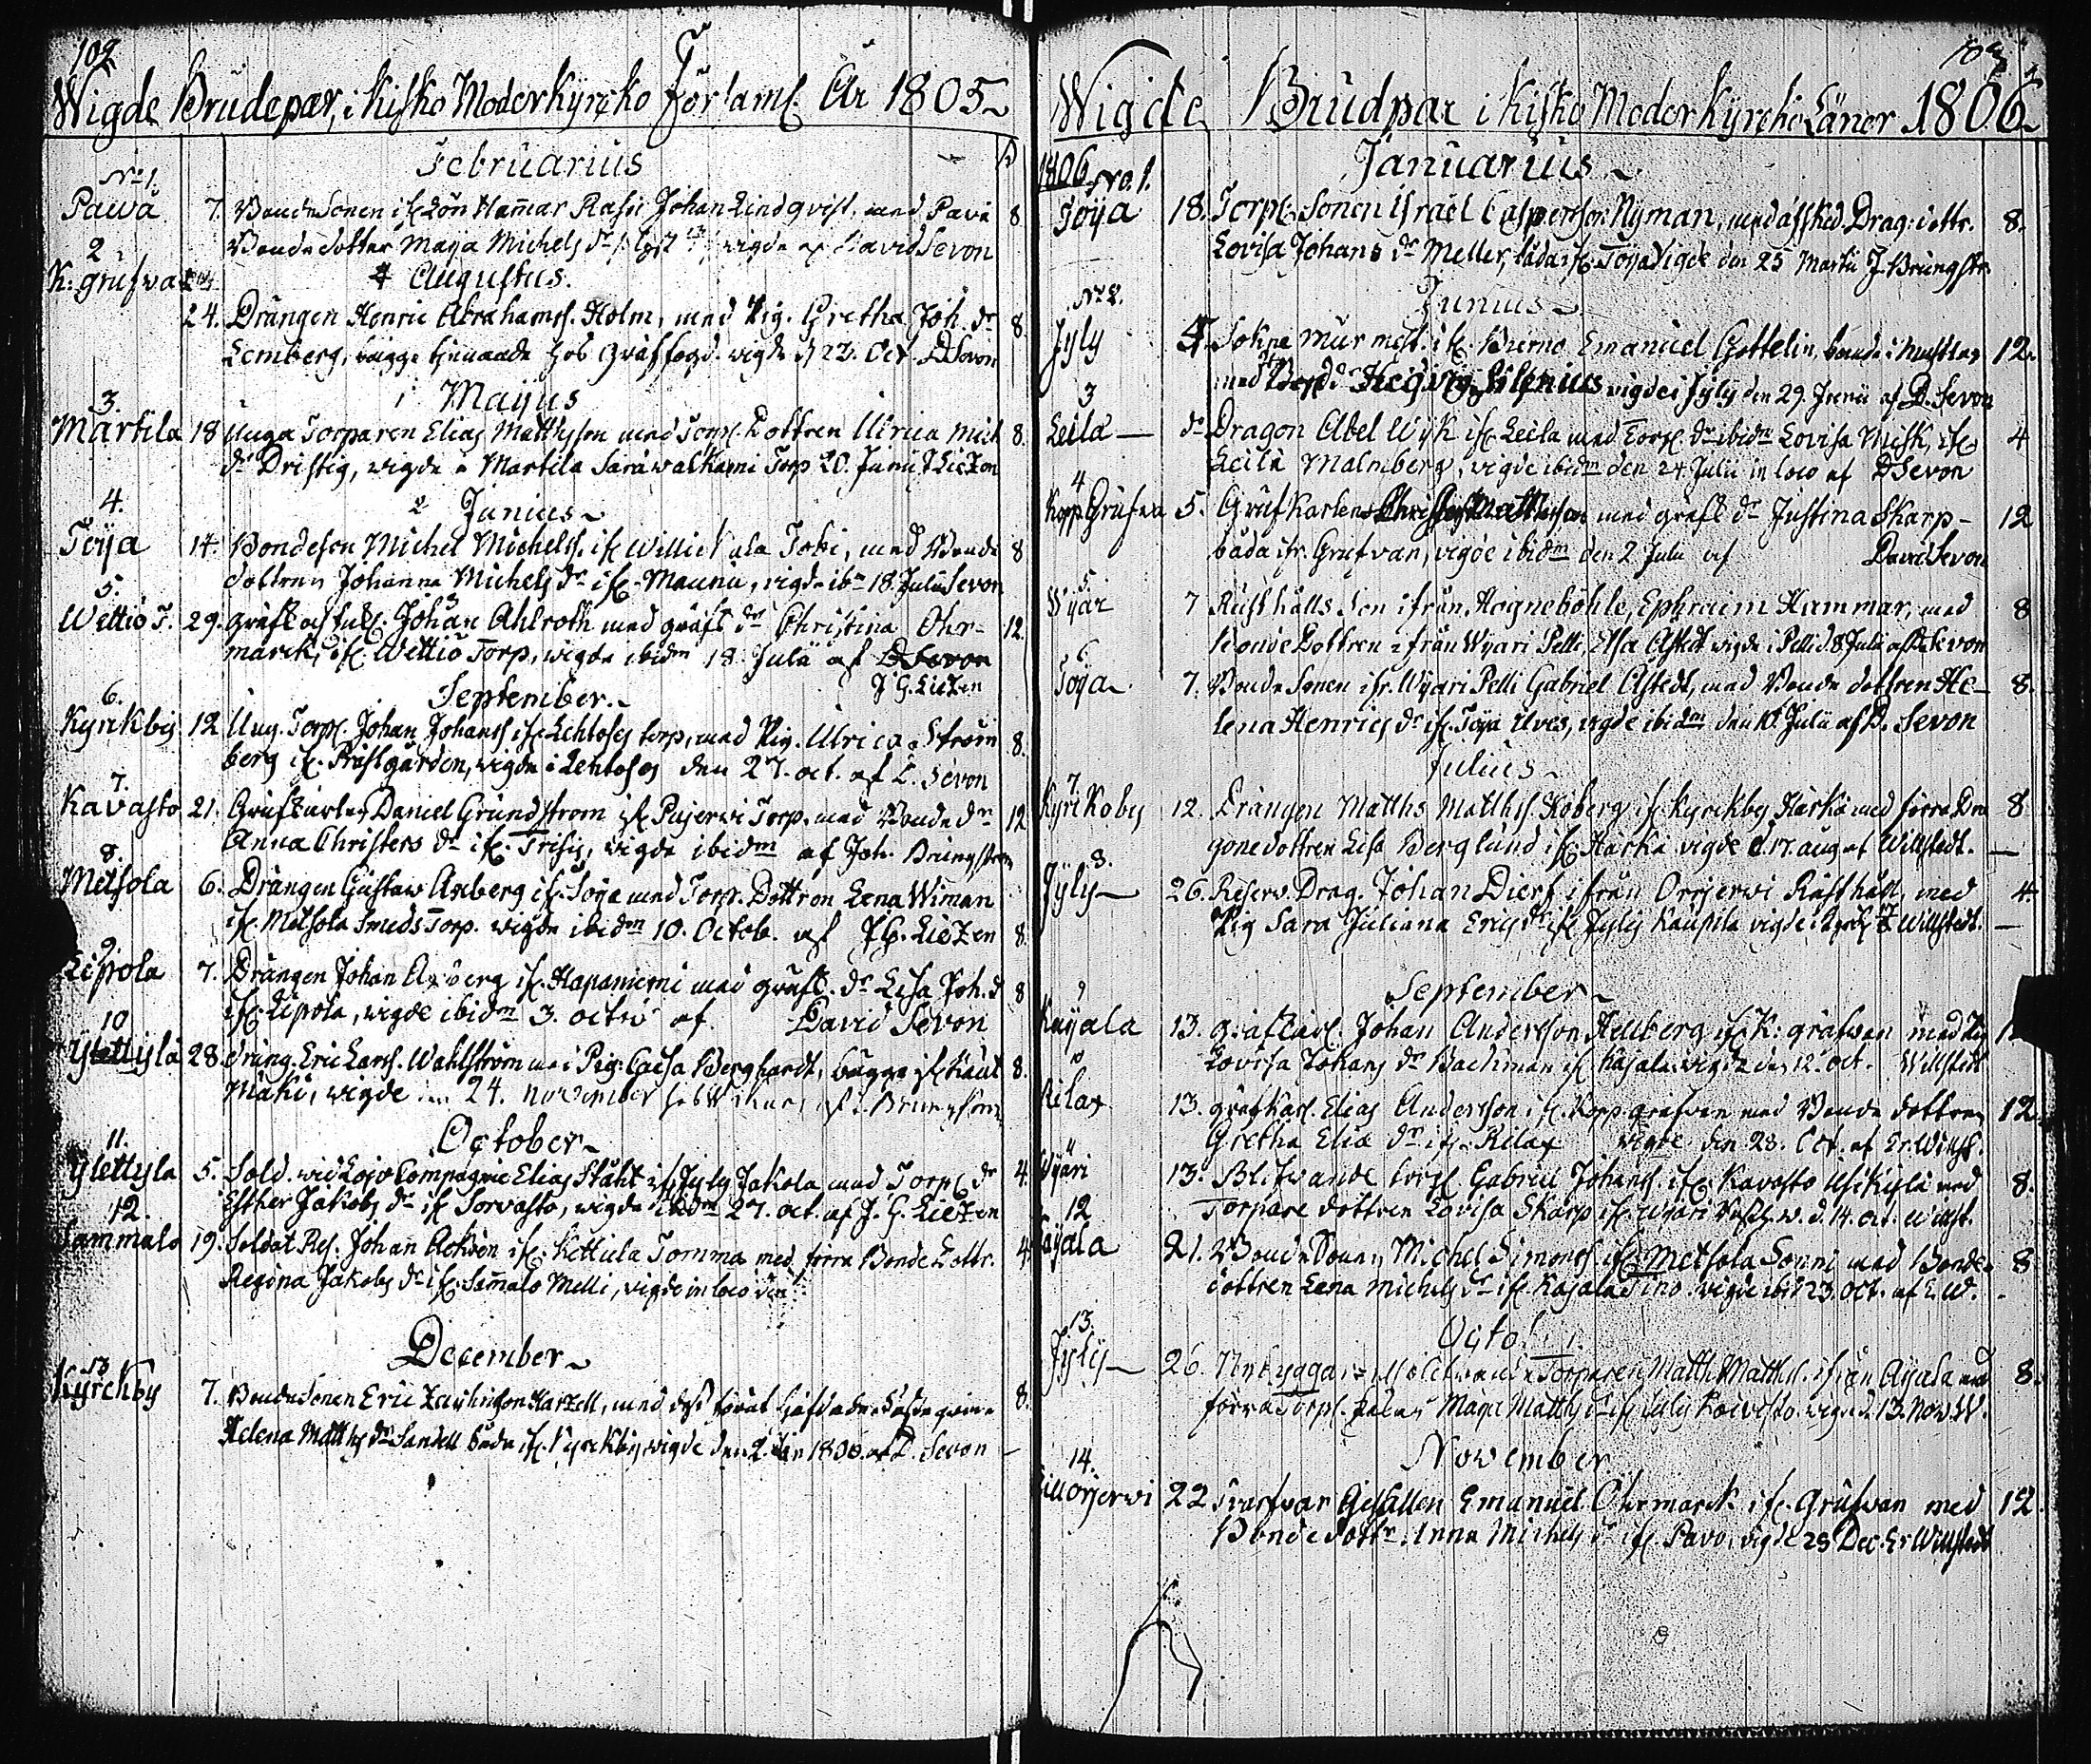 102
Wigde Brudepar, i Kisko Moderkyrcko Församl. År 1805
Februarius
No 1.
Pawa 7. Bondesonen if. Hammar Rasu Johan Lindqvist, med Pava 8
Bondedotter Maja Michels dr wigde af David Sevon
2
K: grufwa
Augustus.
24. Drängen Henric Abrahamss. Holm, med Pig. Gretha Joh. dr 8.
Lemberg, bägge tjenande hos Gruffogd. wigde d 23. Oct. D Sevon
Majus
3.
Martila 18 Unga Torparen Elias Matthsson med Torp. Dottren Ulrica Mich 8.
dr Driftig, wigde i Martila Torp 20. Junii J Liezen
4.
Junius
Toija 14. Bondeson Michel Michelss. if. Willickala Tobi, med Bonde 8
dottren Johanna Michels dr if. Maunu, wigde ibm 18. Julii Sevon
5.
Wettiö T. 29. Johan Ahlroth med grufk dr Christina Ohr- 12.
marck, if. Wettiö Torp, wigde ibidm 18. Julii af D Sevon
J. G. Liezen
September.
6.
Kyrckby 12 Ung. Torp. Johan Johanss if. Lehtoses torp, med Pig. Ulrica Ström 8.
berg if. Prästgården, wigde i Lehtoses den 27. oct. af D. Sevon
7.
Kavasto 21. Grufkarlen Daniel Grundstrom if Pajerwi Torp. med Bonde dr 12
Anna Christers dr if. Trisis, wigde ibidm af Joh. Brungström
8.
Metsola 6. Drängen Gustaw Axberg if. Toija med Torp. Dottren Lena Wiman
if. Metsola Smeds Torp. wigde ibidm 10. Octob. af J G. Liezen 8.
9.
Lipola 7. Drängen Johan Axberg if. Hapaniemi med grufk. dr Lisa Joh. d 8
if. Lipola, wigde ibidm 3. octob af David Sevon
10
Ylettyla 28. Dräng. Eric Larss. Wahlström med Pig. Cajsa Berghardt, bägge if Kaut 8.
Mäki, wigde den 24. November af J. Brungström
October
11.
Ylettyla 5. Sold. wid Lojo Compagnie Elias Ståhl if. Jyly Jakola med Torp. dr 4.
Esther Jakobs dr if Torvasto, wigde ibidm 27. oct. af J. G. Liezen
12.
Sammalo 19. Soldat Res. Johan if. Kettula Tomma med förra Bonde Dottr. 4.
Regina Jakobs dr if. Sammalo Melli, wigde in loco den
December
13
Kyrckby 7. Bondesonen Eric med dess förut
Helena Matths dr Sandell både if. Kyrckby, wigde den 2. 1806. af D. Sevon
103
Wigde Brudpar i Kisko Moderkyrcko Läner 1806
1806 No. 1. Januarius
Toija 18. Torp. Sonen Israel Caspersson Nyman, med afsked. Drag. dottr. 8.
Lovisa Johans dr Meller, båda if. Toija Wigde den 25 Martii J. Brungstr.
No 2. Junius
Jyly 4. Sokne Mur mest. if. Bierno Emanuel Gottelin, 12.
med Hedvig Silenius wigde i Jyly den 29. Junii af D. Sevon
3
Leila dr Dragon Abel Wijk if. Leila med Torp. dr ibidm Lovisa Misk, if. 4
Leila Malmberg, vigde ibidm den 24 Julii in loco af D Sevon
4
Kopp. Grufva 5. Grufkarlen Christer Mattsson med grufk dr Justina Skarp 12
båda ifr. Grufvan, vigde ibidm den 2 Julii af David Sevon
5
Wyar 7 Rusthålls Son ifrån Hogneböhle, Ephraim Hammar, med 8
Bonde Dottren ifrån Wyari Pelli, Elsa Alstedt wigde i Pelli d. 8 Julii af D. Sevon
6
Toija 7. Bonde Sonen ifr. Wyari Pelli Gabriel Alstedt, med Bonde dottren He- 8.
lena Henrics dr if. Toija Uves, vigde ibidm den 10. Julii af D. Sevon
Julius
7.
Kyrkoby 12. Drängen Matths Matthss. Hoberg if. Kyrckby Harka med förra Dra 8
gonedottren Lisa Berglund if. Harka vigde d. 17. aug af Willstedt.
8.
Jyly 26. Reserv. Drag. Johan Dierf ifrån Orijerwi Rusthåll, med 4.
Pig Sara Juliana Erics dr if. Jyly Kaupila vigde Willstedt.
September
9
Kajala 13. Johan Andersson Hellberg if. K: grufwan med Pig
Lovisa Johans dr Backman if Kajala vigde den 12. Oct. Willstedt
10
Rilax 13. grufkarl. Elias Andersson if. Kopp. grufwan med Bonde dottren 12
Gretha Eliæ dr if. Rilax vigde den 28. Oct. af Er. Willst.
11
Wyari 13. Blifwande torp. Gabriel Johanss. if. Kavasto Usikyla med 8.
Torpare dottren Lovisa Skarp if. Wyari w. d. 14. Oct. Willst.
12
Kajala 21. Bonde Sonen Michel Simonss if. Metsola Sonni med Bonde 8
dottren Lena Michels dr if. Kajala Tino. vigde ibid 23. Oct. af E. W.
13.
Octo
Jyly 26. Torparen Matth. Matths. ifrån Ajala med 8.
förra Torp. Maja Matths dr if Jyly Koivisto. vigde d. 13. Nov. W.
14. November
Lillorjerwi 22 Swarfvar Gesällen Emanuel Ohrmarck if. Grufwan med 12.
Bonde dottr. Anna Michels dr if. Pavo, vigde 28 Dec. Er Willstedt